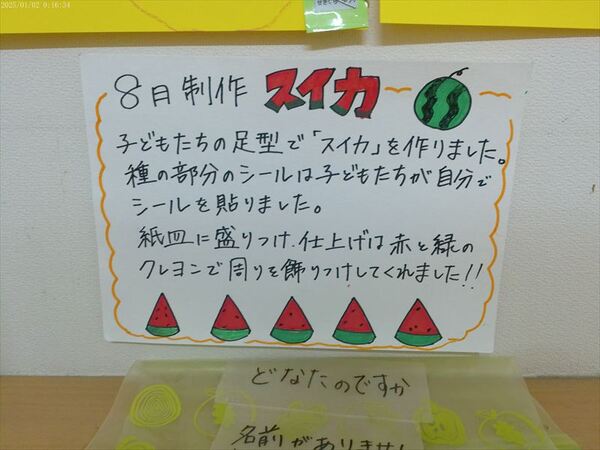 2025/01/02 0:16:34
8月制作 スイカ
子どもたちの足型で「スイカ」を作りました。
種の部分のシールは子どもたちが自分で
シールを貼りました。
紙皿に盛りつけ、仕上げは赤と緑の
クレヨンで周りを飾りつけしてくれました!!
どなたのですか
名前がありません